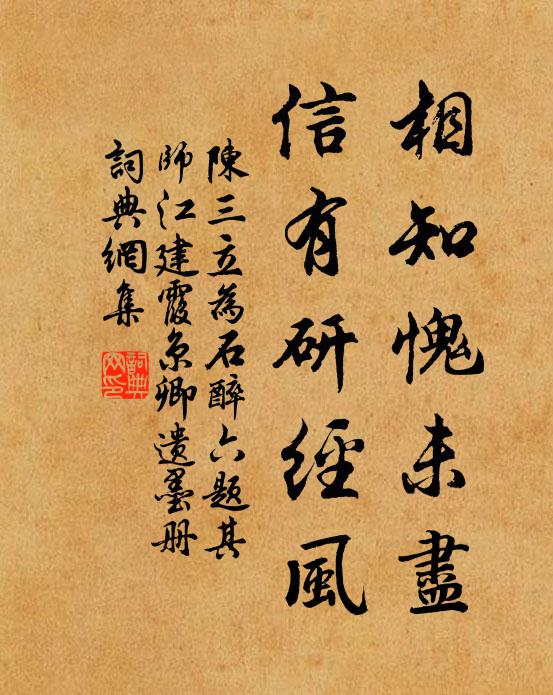 相知愧未盡
信有研經風
陳三立為石醉六題其
師江建霞京卿遺墨册
詞典網集
詞典網印